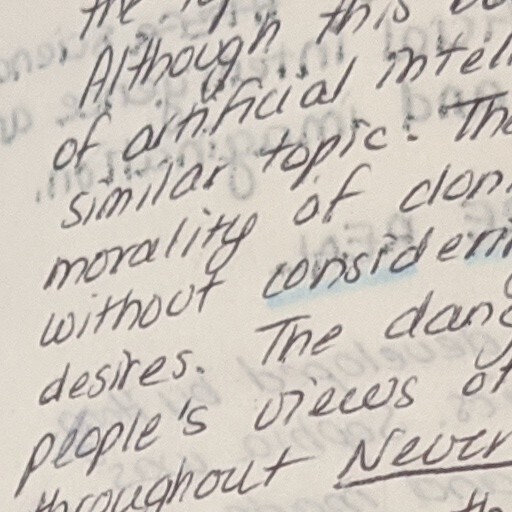 the
Although this
of artificial intel
similar topic. The
morality of clon
without consideri
desires. The dang
people's views of
throughout Never
the